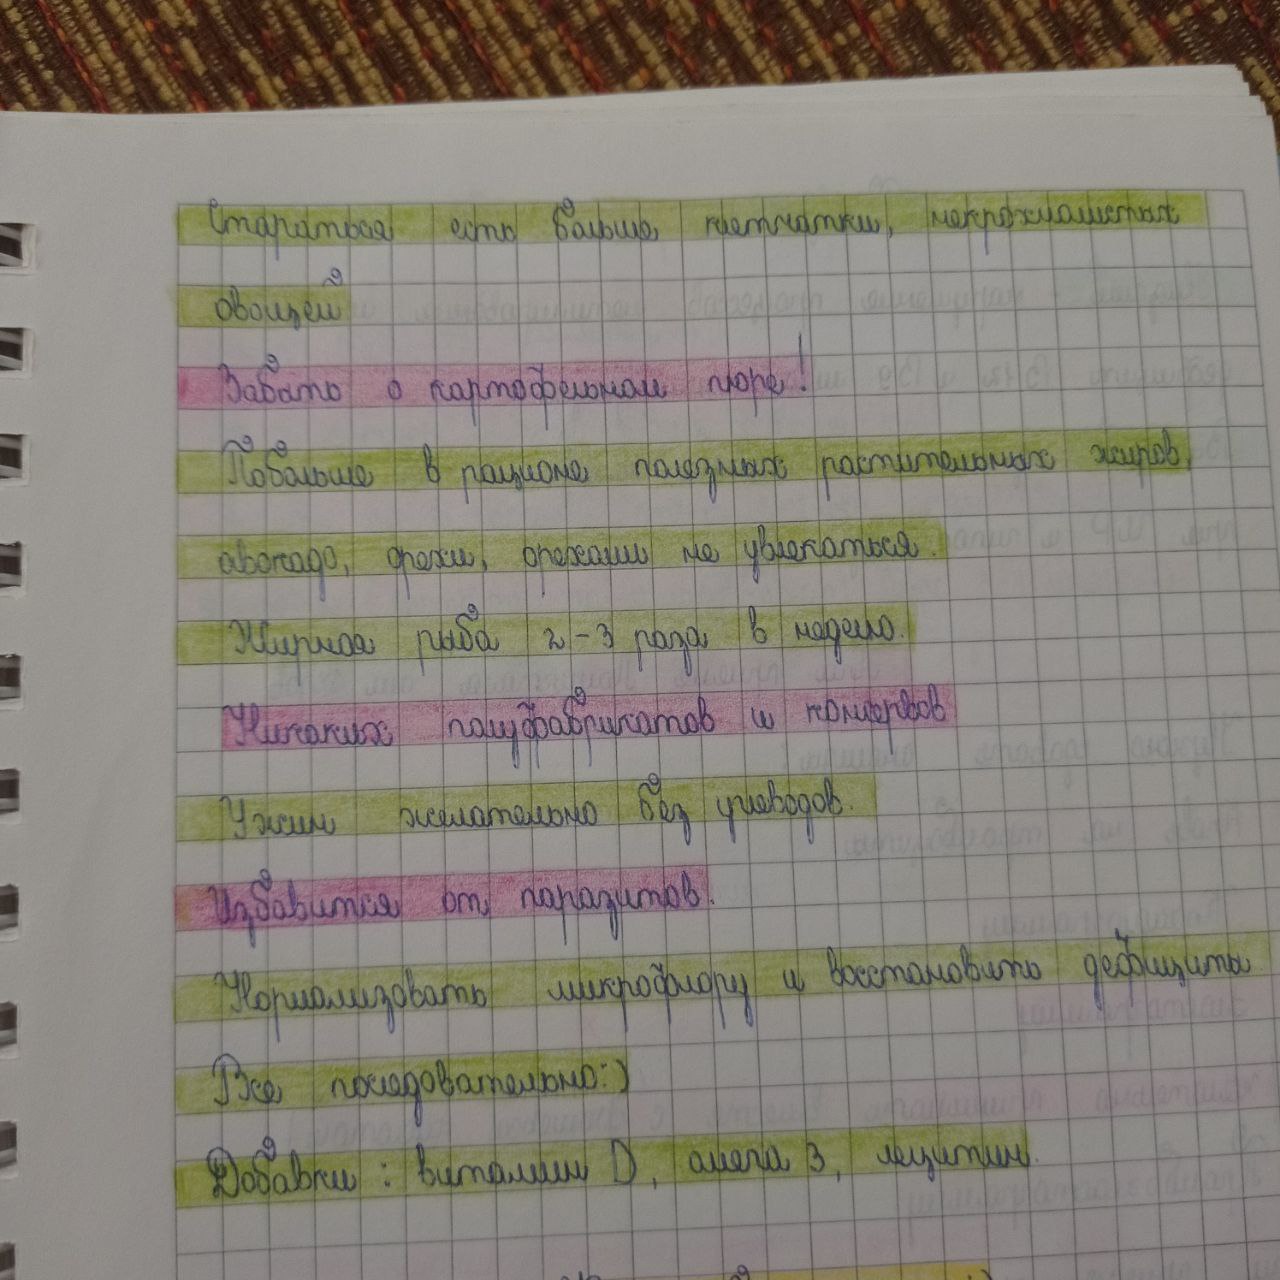 Стараться есть больше клетчатки, некрахмалистых
овощей
Забыть о картофельном пюре!
Побольше в рационе полезных растительных жиров,
авокадо, орехи, орехами не увлекаться.
Жирная рыба 2-3 раза в неделю.
Никаких полуфабрикатов и консервов
Ужин желательно без углеводов.
Избавится от паразитов.
Нормализовать микрофлору и восстановить дефициты
Все последовательно:)
Добавки: витамин D, омега 3, лецитин.